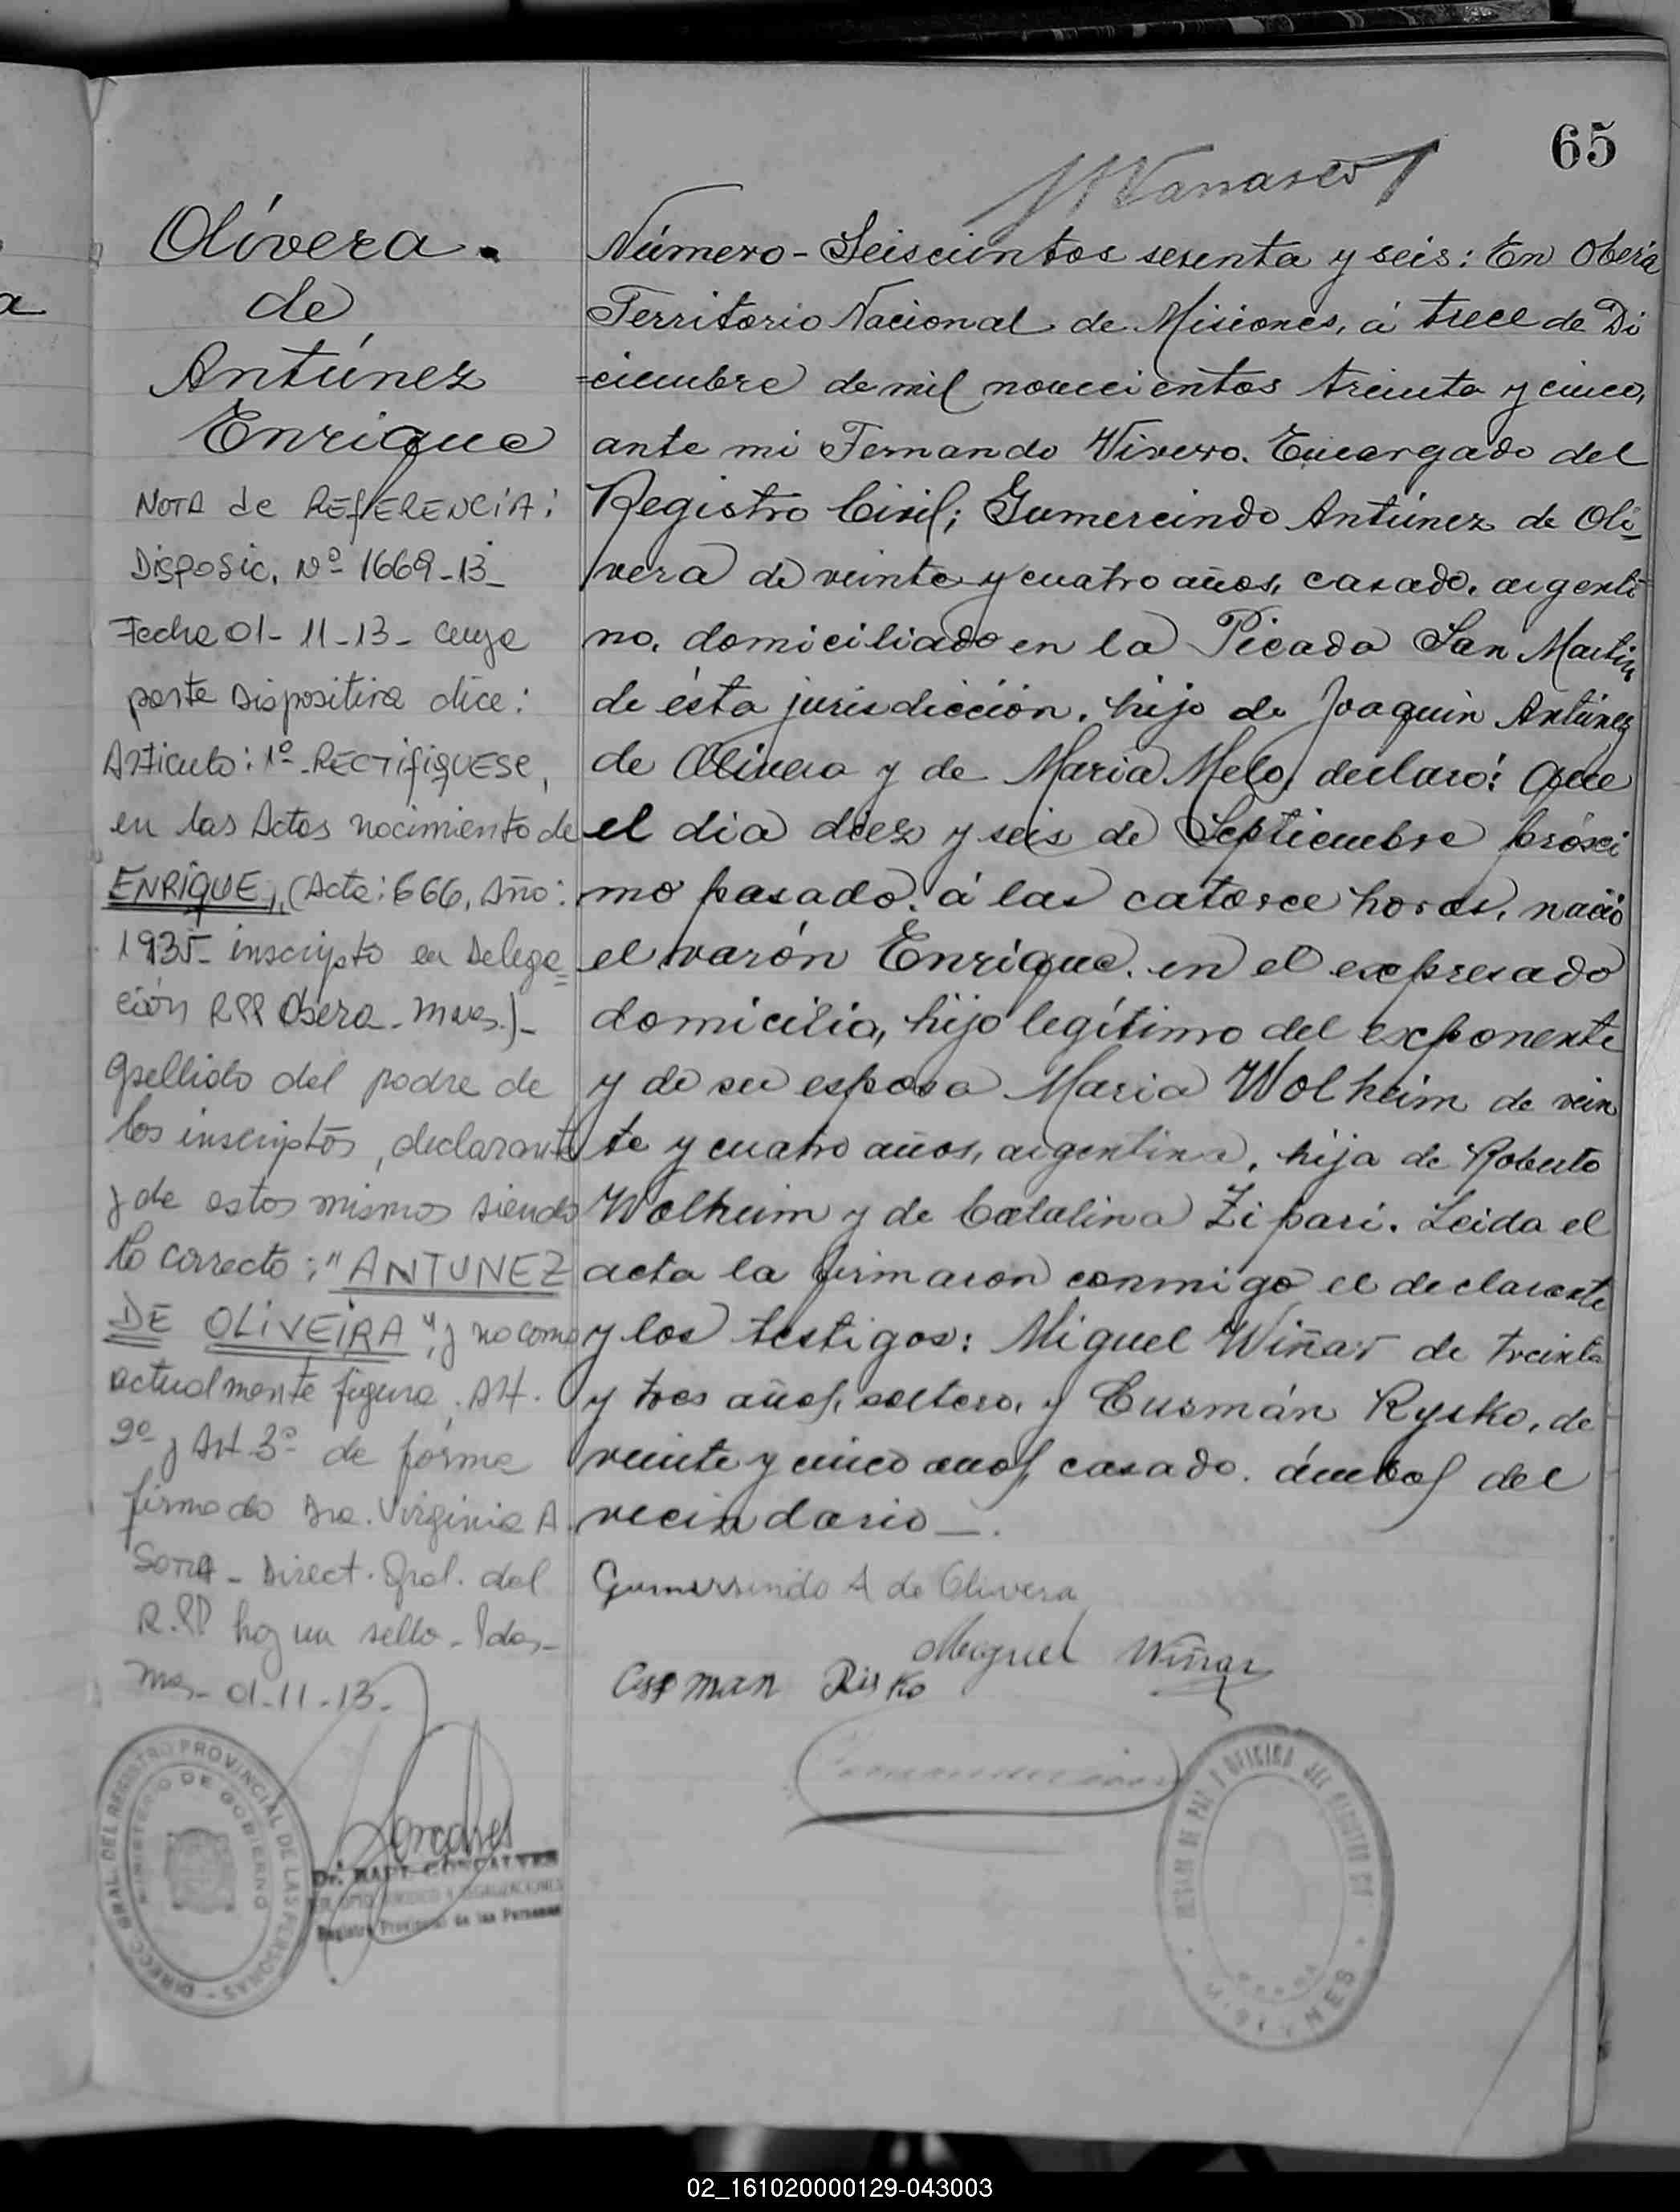 65
Olivera.
de
Antúnez
Enrique
NOTA de REFERENCIA:
Disposic. Nº 1669-13-
Fecha 01-11-13- cuya
parte Dispositiva dice:
Articulo: 1º- RECTIFIQUESE,
en las Actas nacimiento de
ENRIQUE, (Acta: 666, Año:
1935- inscripto en Delega=
ción RPP Obera - Mnes.)-
apellido del padre de
los inscriptos, declarante
y de estos mismos siendo
lo correcto: "ANTUNEZ
DE OLIVEIRA" y no como
actualmente figura. Art.
2º y Art 3º de forma
firmado Dra. Virginia A.
Direct. Gral. del
R.PP hay un sello - Pdas-
Mnes- 01-11-13.
Número - Seiscientos sesenta y seis: En Oberá
Territorio Nacional de Misiones, á trece de Di
=ciembre de mil novecientos treinta y cinco,
ante mi Fernando Vivero. Encargado del
Registro Civil; Gumercindo Antúnez de Oli=
vera de veinte y cuatro años, casado, argenti
no, domiciliado en la Picada San Martin
de ésta jurisdicción, hijo de Joaquin Antúnez
de Olivera y de Maria Melo, declaró: Que
el dia diez y seis de Septiembre próxi
mo pasado, á las catorce horas, nació
el varón Enrique, en el expresado
domicilio, hijo legítimo del exponente
y de su esposa Maria Wolheim de vein
te y cuatro años, argentina, hija de Roberto
Wolheim y de Catalina Zipari. Leida el
acta la firmaron conmigo el declarante
y los testigos: Miguel Wiñar de treinta
y tres años, soltero, y Cusmán Rysko, de
veinte y cinco años, casado. ámbos del
vecindario —.
Gumersindo A de Olivera
Miguel Wiñar
Cusman Risko
DIRECC. GRAL. DEL REGISTRO PROVINCIAL DE LAS PERSONAS
MINISTERIO DE GOBIERNO
Dr. RAUL GONCALVES
Registro Provincial de las Personas
JUZGADO DE PAZ Y OFICINA DEL REGISTRO CIVIL
MISIONES
02_161020000129-043003